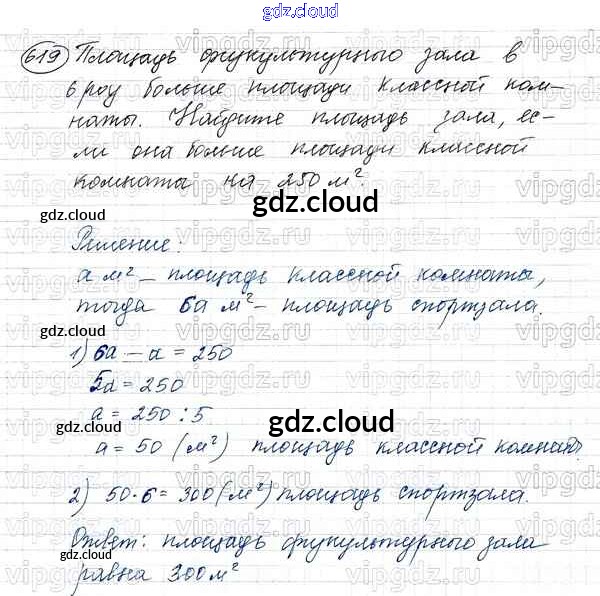 gdz.cloud
619 Площадь физкультурного зала в
6 раз больше площади классной ком-
наты. Найдите площадь зала, ес-
ли она больше площади классной
комнаты на 250 м².
gdz.cloud gdz.cloud
Решение:
a м² – площадь классной комнаты,
тогда 6a м² – площадь спортзала.
gdz.cloud
1) 6a – a = 250
5a = 250
a = 250 : 5
gdz.cloud
a = 50 (м²) площадь классной комнаты
gdz.cloud
2) 50·6 = 300 (м²) площадь спортзала.
Ответ: площадь физкультурного зала
gdz.cloud gdz.cloud
равна 300 м²